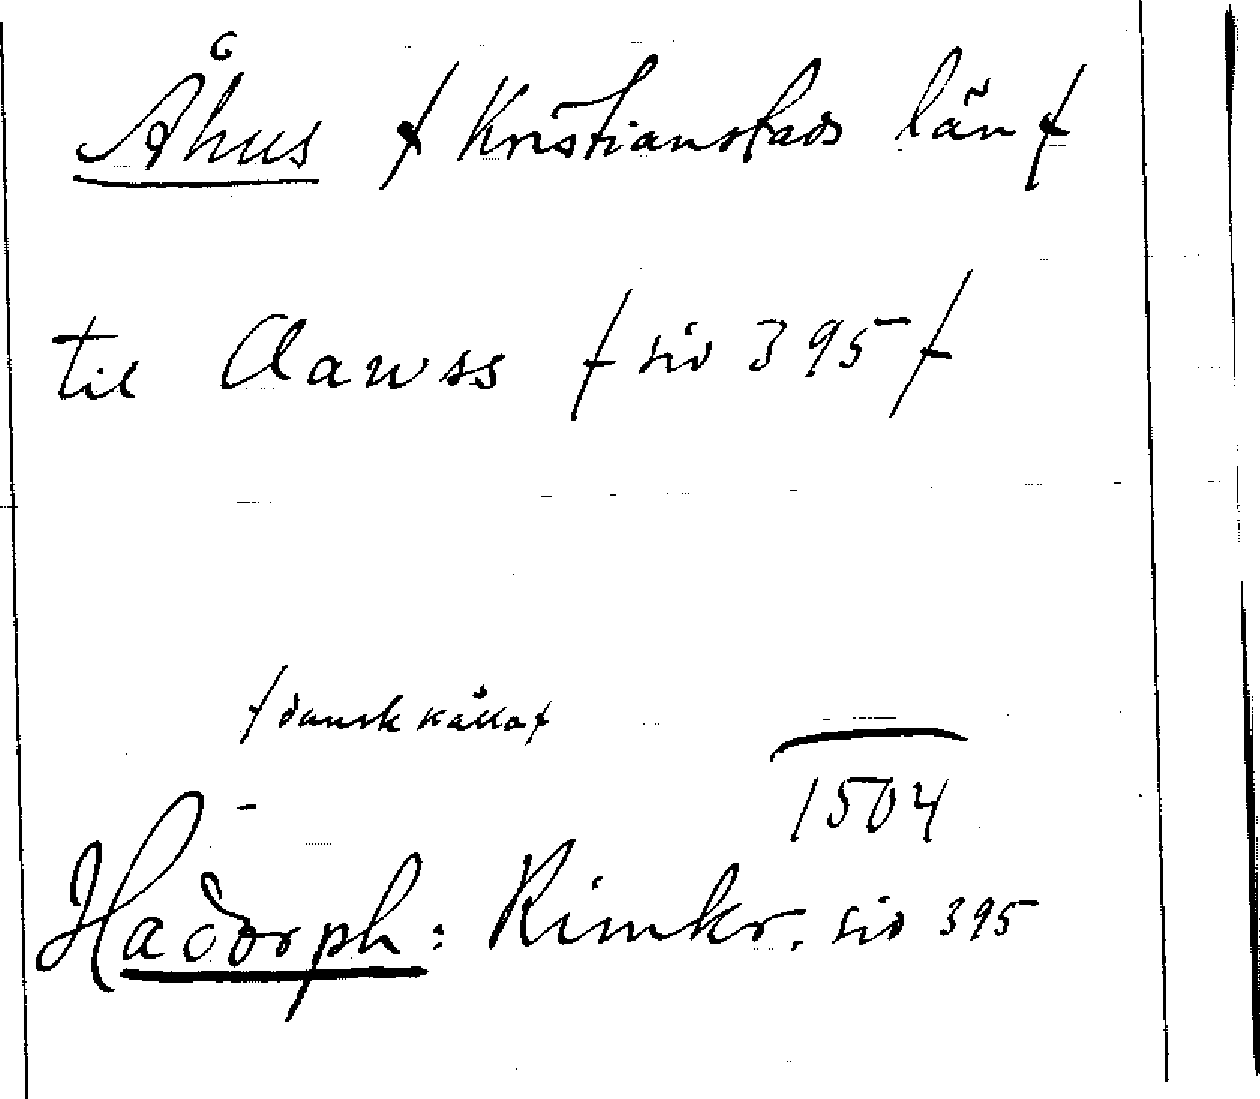 Åhus / Kristianstads län /
til Aawss / sid 395 /
/ dansk källa /
1504
Hadorph: Rimkr. sid 395